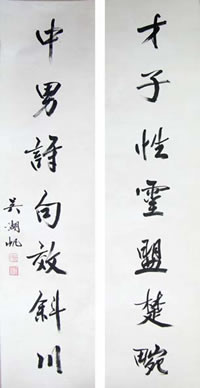 才子性靈盟楚畹
中男詩句效斜川
吳湖帆